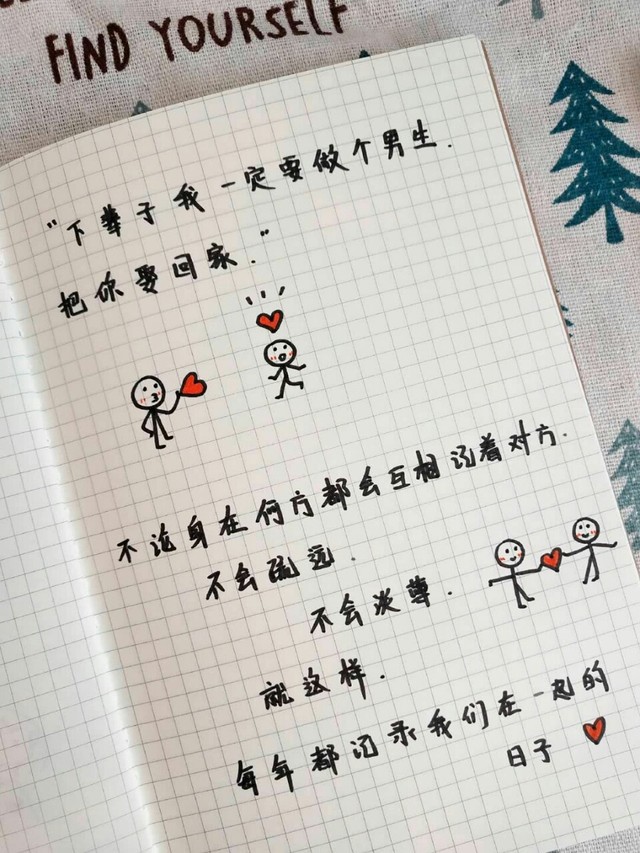 FIND YOURSELF
"下辈子我一定要做个男生.
把你娶回家."
不论身在何方都会互相记着对方.
不会疏远.
不会淡薄.
就这样.
每年都记录我们在一起的
日子